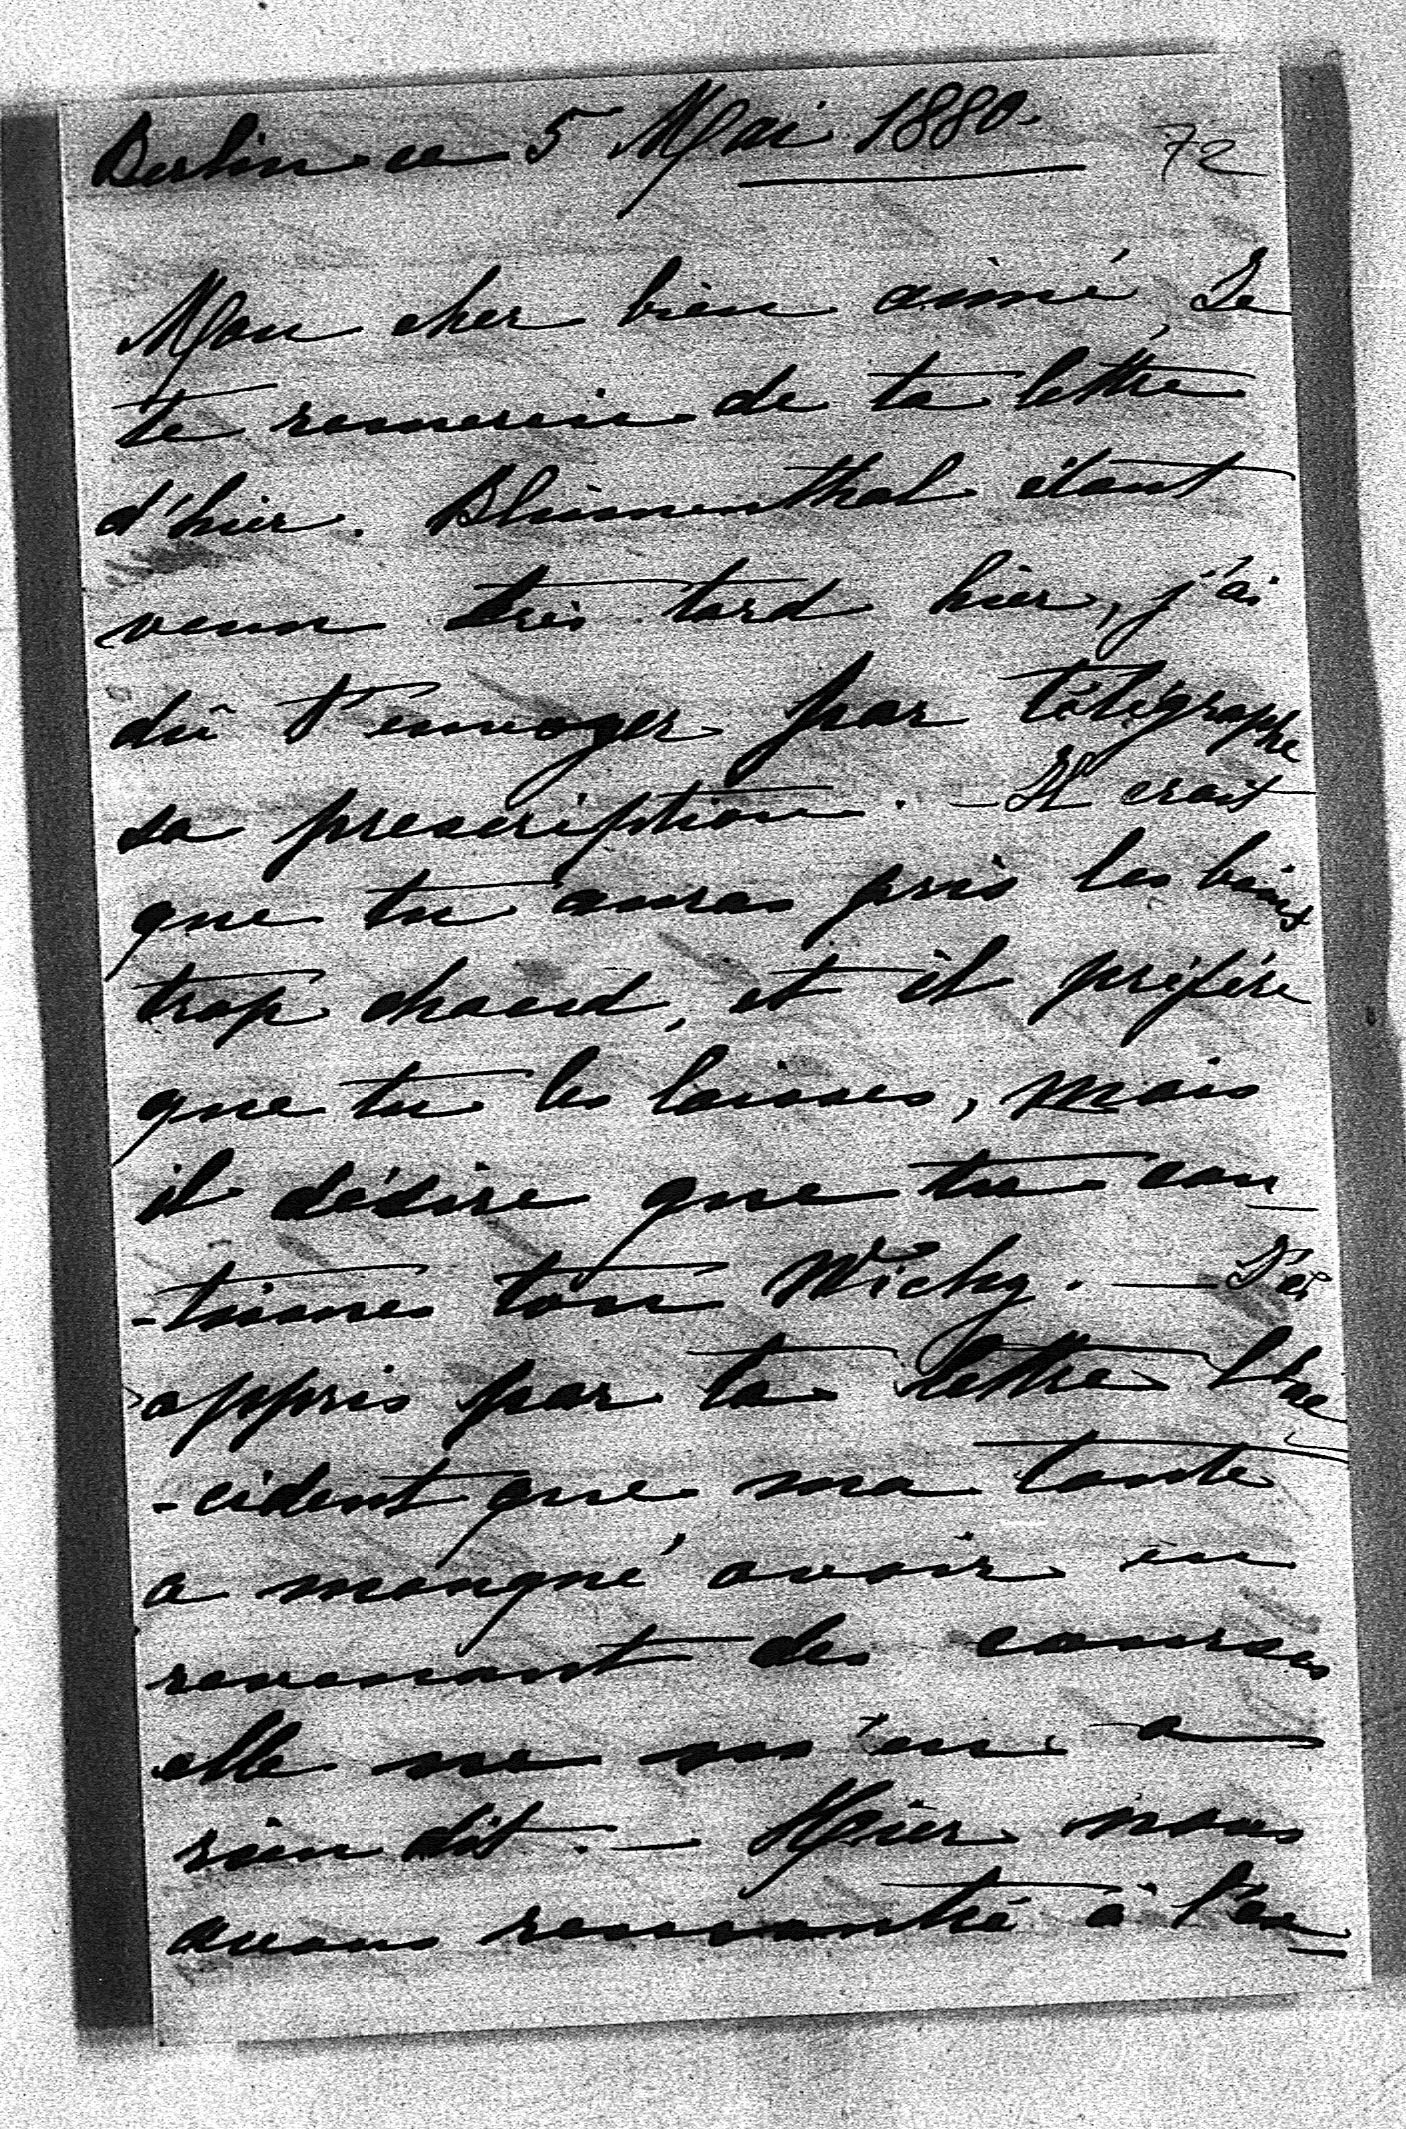 Berlin ce 5 Mai 1880. 72
Mon cher bien aimé, Je
te remercie de ta lettre
d'hier. Blumenthal étant
venu très tard hier, j'ai
dû t'envoyer par télégraphe
sa prescription. — Il croit
que tu auras pris les bains
trop chaud, et il préfère
que tu les laisses, mais
il désire que tu con
-tinues ton Wichy. — J'ai
appris par ta lettre l'ac
-cident que ma tante
a manqué avoir en
revenant des courses
elle ne m'en a
rien dit. — Hier nous
avons rencontré à l'ex